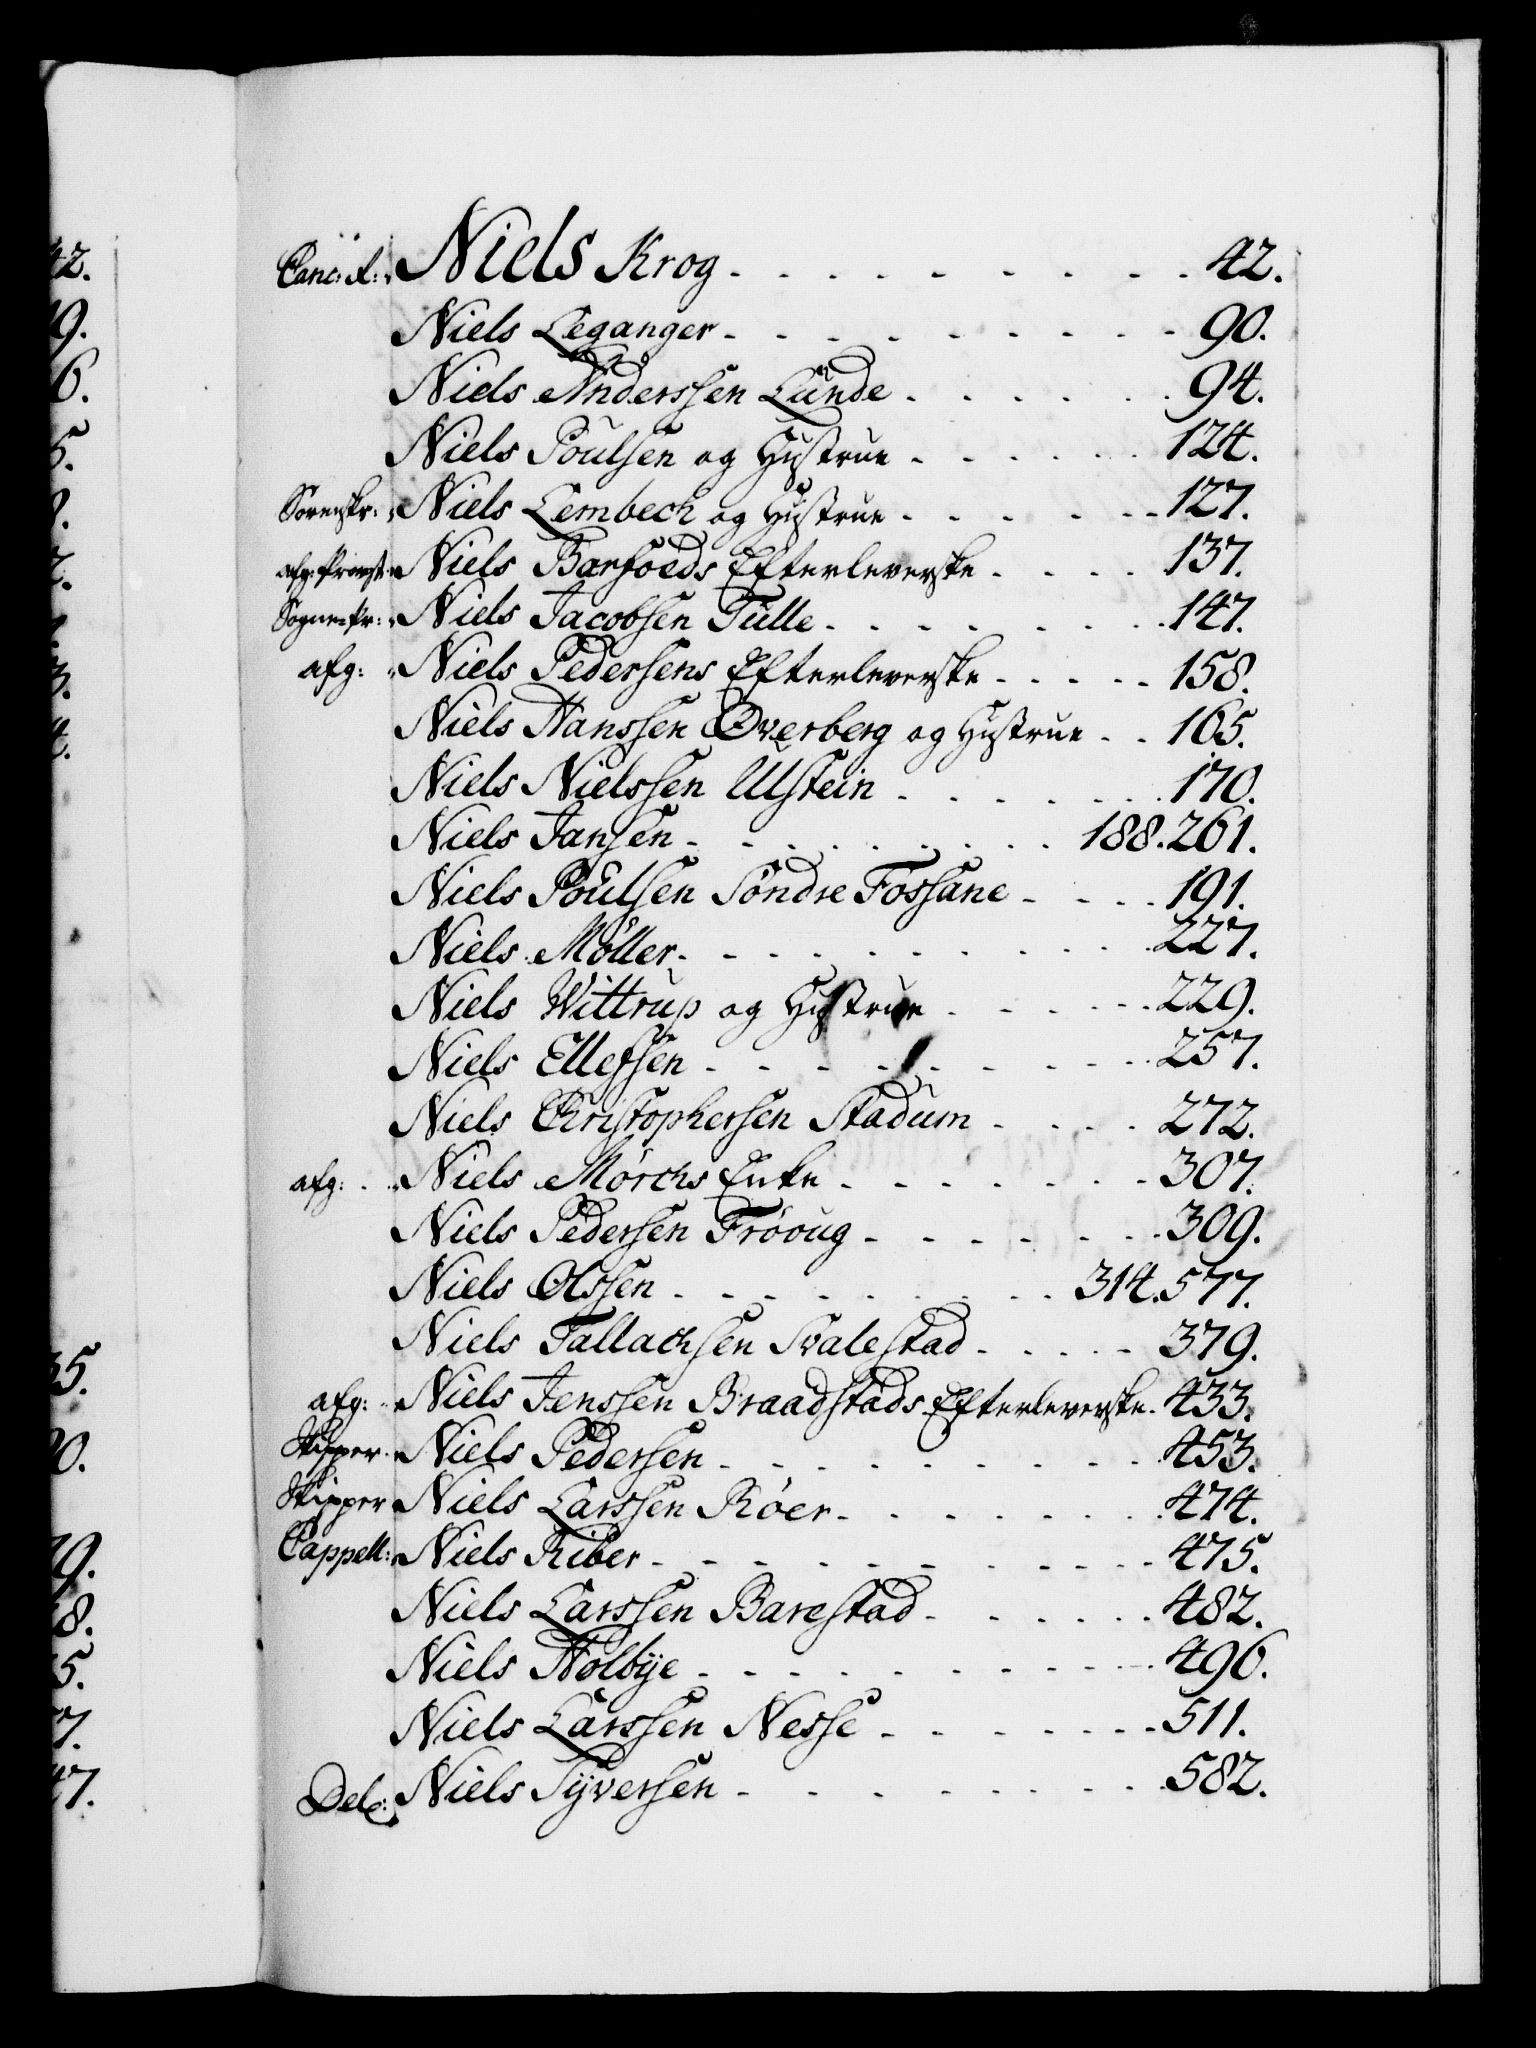 Canc: R: Niels Krog - - - - - - - - - 42.
Niels Leganger - - - - - - - - - 90.
Niels Anderssen Lünde - - - - - - 94.
Niels Poulsen og Hustrue - - - - - 124.
Sorenskr: Niels Lembech og Hustrue - - - - - - 127.
afg: Provst Niels Barfoeds Efterleverske - - - - 137.
Sogne-Pr: Niels Jacobsen Tülle - - - - - - - 147.
afg: Niels Pedersens Efterleverske - - - - - 158.
Niels Hanssen Øverberg og Hustrue - - 165.
Niels Nielssen Ulstein - - - - - - 170.
Niels Jansen - - - - - - - - 188. 261.
Niels Poulsen Söndre Fossane - - - - 191.
Niels Møller - - - - - - - - - 227.
Niels Wittrup og Hustrue - - - - - 229.
Niels Ellefsen - - - - - - - - - 257.
Niels Christophersen Stadum - - - - 272.
afg: Niels Mørchs Enke - - - - - - - 307.
Niels Pedersen Frøoug - - - - - - - 309.
Niels Olssen - - - - - - - - - 314. 577.
Niels Tallachsen Svalestad - - - - - 379.
afg: Niels Jenssen Braadstads Efterleverske - 433.
Skipper Niels Pedersen - - - - - - - - - 453.
Skipper Niels Larssen Röer - - - - - - - 474.
Cappell: Niels Riber - - - - - - - - - - 475.
Niels Larssen Barestad - - - - - - 482.
Niels Holbÿe - - - - - - - - - - 496.
Niels Larssen Nesse - - - - - - - 511.
Niels Sÿversen - - - - - - - - - 582.